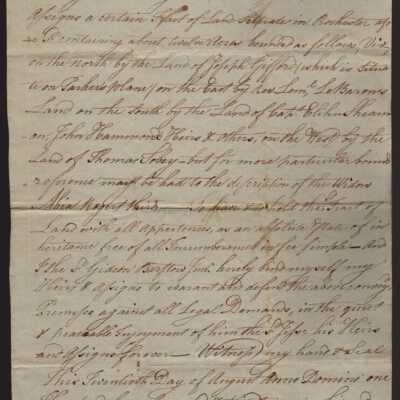 Assigns a certain Tract of Land Situate in Rochester afore
s.d containing about twelve Acres bounded as follows, Viz.
on the north by the Land of Joseph Gifford (which is Situa
te on Parkers plane) on the East by Rev.d Lem.l LeBarons
Land on the South by the Land of Cap.t Elisha
on, John Hammonds Heirs & others, on the West by the
Land of Thomas Tobey - but for more particular bound
reference may be had to the description of the Widow
third. To have & to hold the Tract of
Land with all Appertences, as an absolute Estate of in
heritance free of all Incumbrances in fee Simple - And
I the s.d Gideon Barstow Jun.r hereby bind myself my
Heirs & Assigns to warrant and defend the above convey.d
Premises against all Legal Demands, in the quiet
& peaceable Enjoyment of him the s.d Jesse his Heirs
and Assigns forever - Witness my hand & Seal
this Twentieth Day of August Anno Domini one